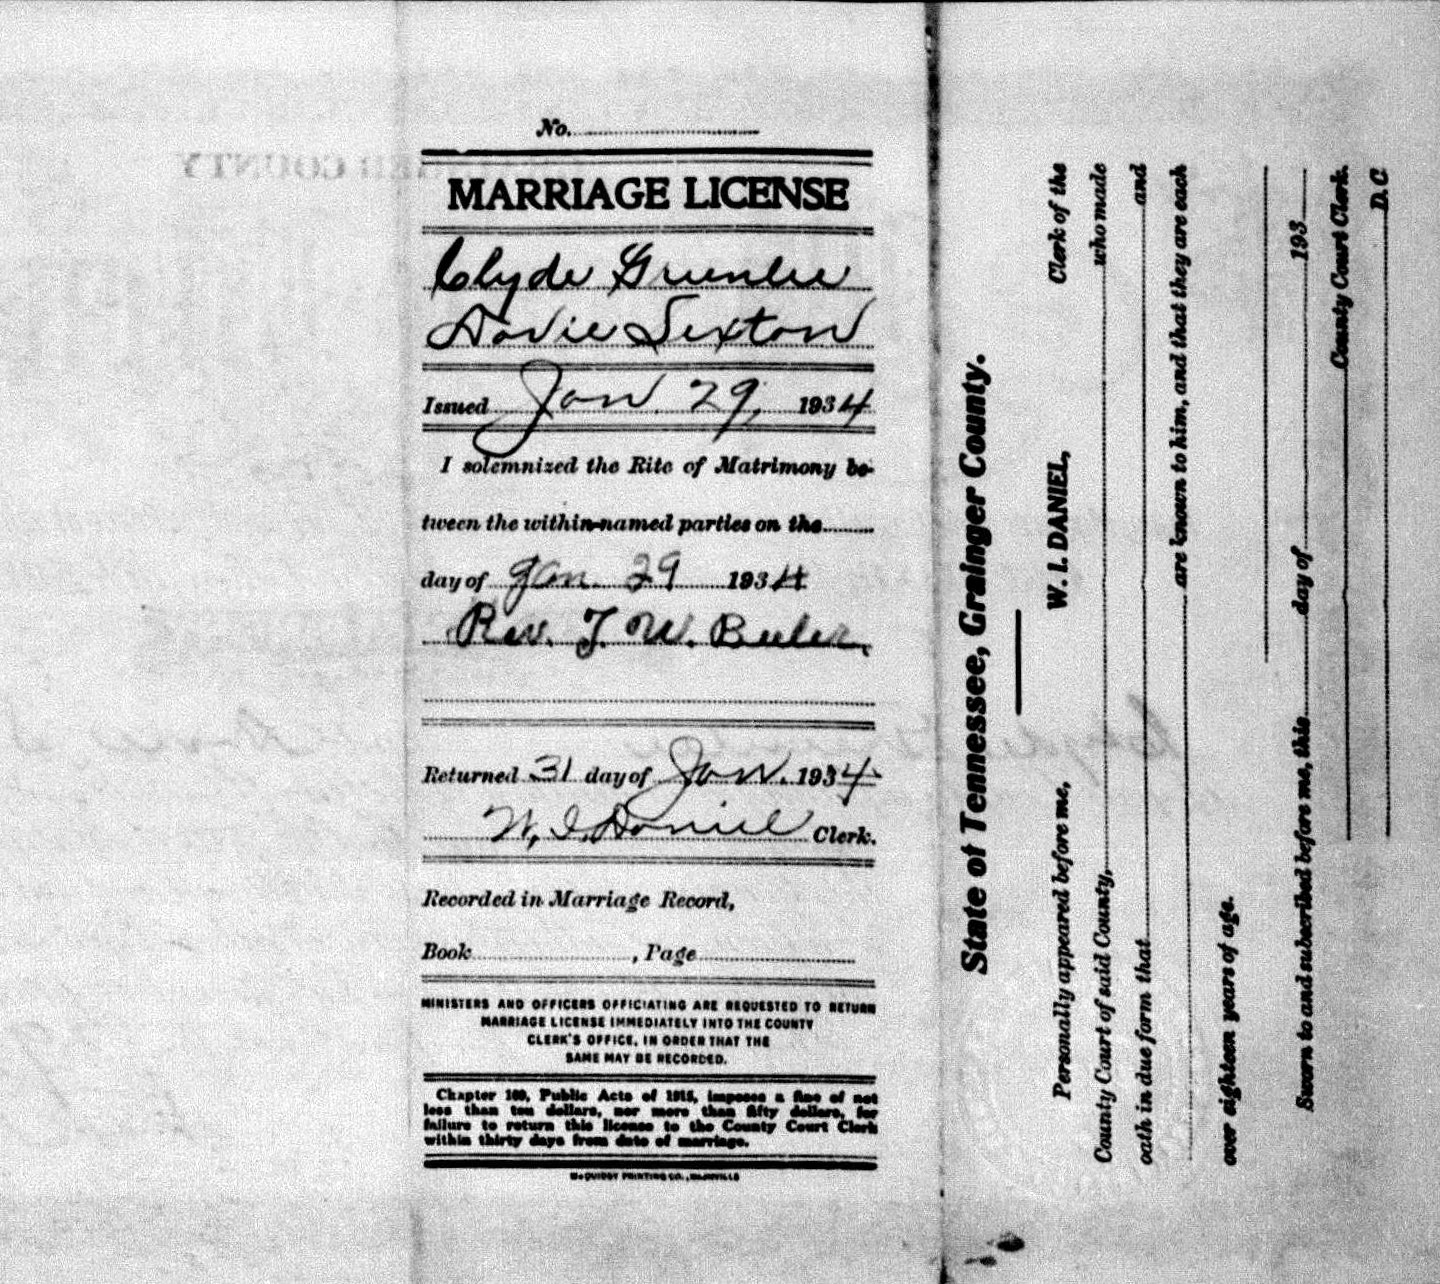 No.
MARRIAGE LICENSE
Clyde Greenlee
Dovie Sexton
Issued Jan 29, 1934
I solemnized the Rite of Matrimony be-
tween the within-named parties on the
day of Jan 29 1934
Rev. J. W. Beeler,
Returned 31 day of Jan. 1934
W. I. Daniel Clerk.
Recorded in Marriage Record,
Book , Page
MINISTERS AND OFFICERS OFFICIATING ARE REQUESTED TO RETURN
MARRIAGE LICENSE IMMEDIATELY INTO THE COUNTY
CLERK'S OFFICE, IN ORDER THAT THE
SAME MAY BE RECORDED.
Chapter 109, Public Acts of 1915, imposes a fine of not
less than ten dollars, nor more than fifty dollars, for
failure to return this license to the County Court Clerk
within thirty days from date of marriage.
McQUIDDY PRINTING CO., NASHVILLE
State of Tennessee, Grainger County.
Personally appeared before me, W. I. DANIEL, Clerk of the
County Court of said County, who made
oath in due form that and
are known to him, and that they are each
over eighteen years of age.
Sworn to and subscribed before me, this day of 193
County Court Clerk.
D. C